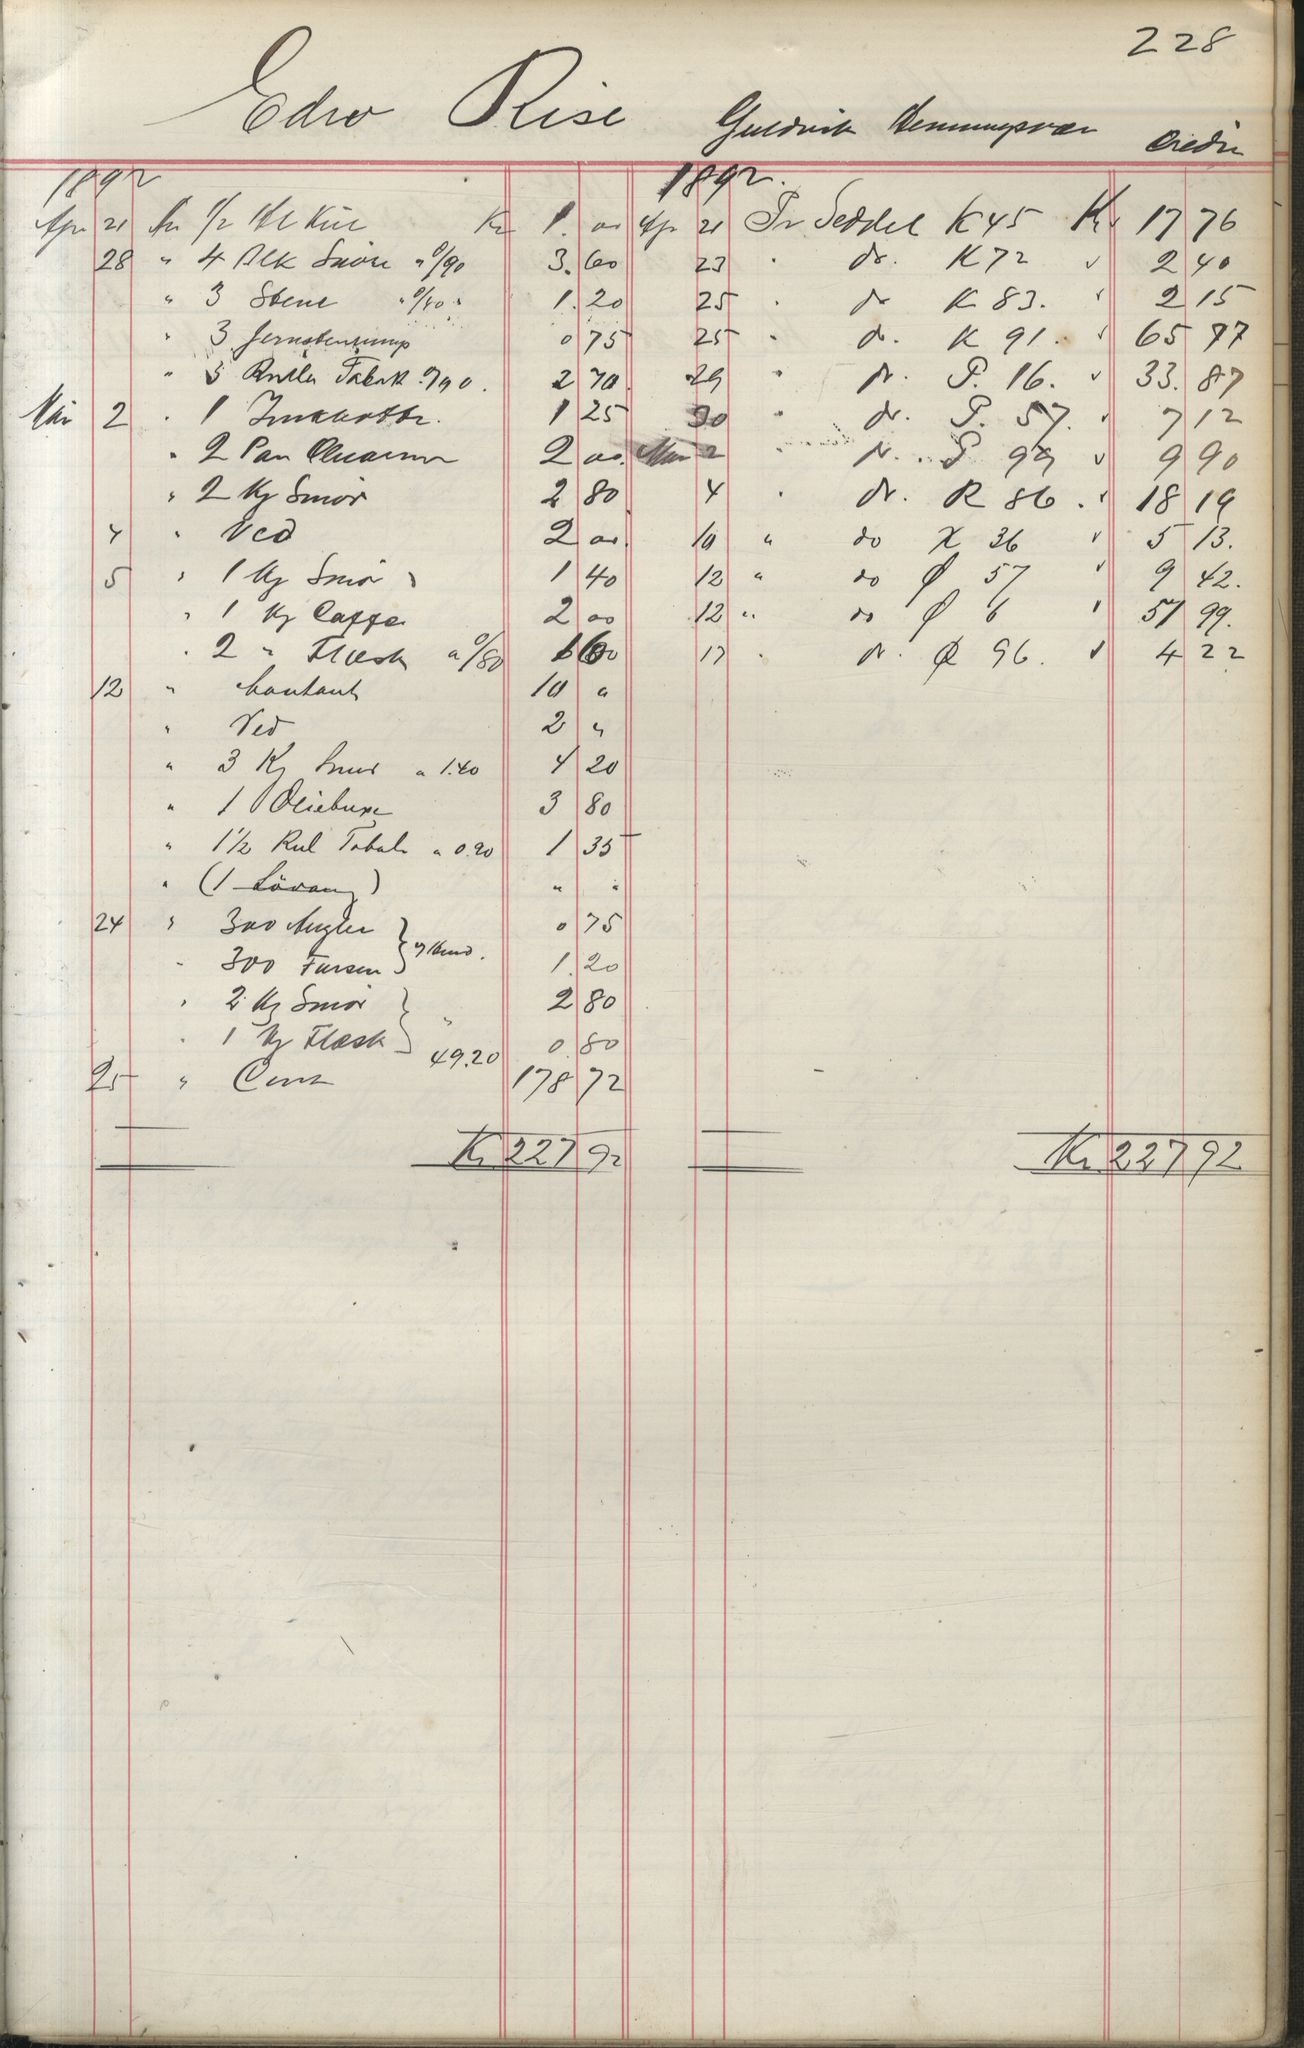 228
Edw Rise Guldvik Henningsvær Credit
1892 1892.
Apr 21 An 1/2 Kr 1. 00 Apr 21 Pr Seddel K 45 Kr 17 76
28 " 4 Blk Smør " 0/90 3. 60 23 " do. K 72 " 2 40
" 3 Stene " 0/40 " 1. 20 25 " do K 83. " 2 15
" 3 0 75 25 " do. K 91. " 65 77
" 3 Ruller Tobak 0/90. 2 70 29 " do. P. 16. " 33. 87
Mai 2 " 1 1 25 30 " do. P. 57. " 7 12
" 2 Par 2 00. Mai 2 " do. P 99 " 9 90
" 2 Kg Smør 2 80 4 " do. R 86. " 18 19
4 " Ved 2 00. 10 " do X 36 " 5 13.
5 " 1 Kg Smør 1 40 12 " do Ø 57 " 9 42.
" 1 Kg Caffe 2 00 12 " do Ø 6 " 51 99.
" 2 " Flæsk a 0/80 1 60 17 " do. Ø 96. " 4 22
12 " Contant 10 "
" Ved 2 "
" 3 Kg Smør a 1.40 4 20
" 1 Oliebuxe 3 80
" 1 1/2 Rul Tobak a 0.90 1 35
" (1 ) " "
24 " 300 Angler 0 75
" 300 Forsen 1. 20
" 2 Kg Smør " 2 80
" 1 Kg Flæsk 0. 80
49.20
25 " Cont 178 72
Kr 227 92 Kr. 227 92